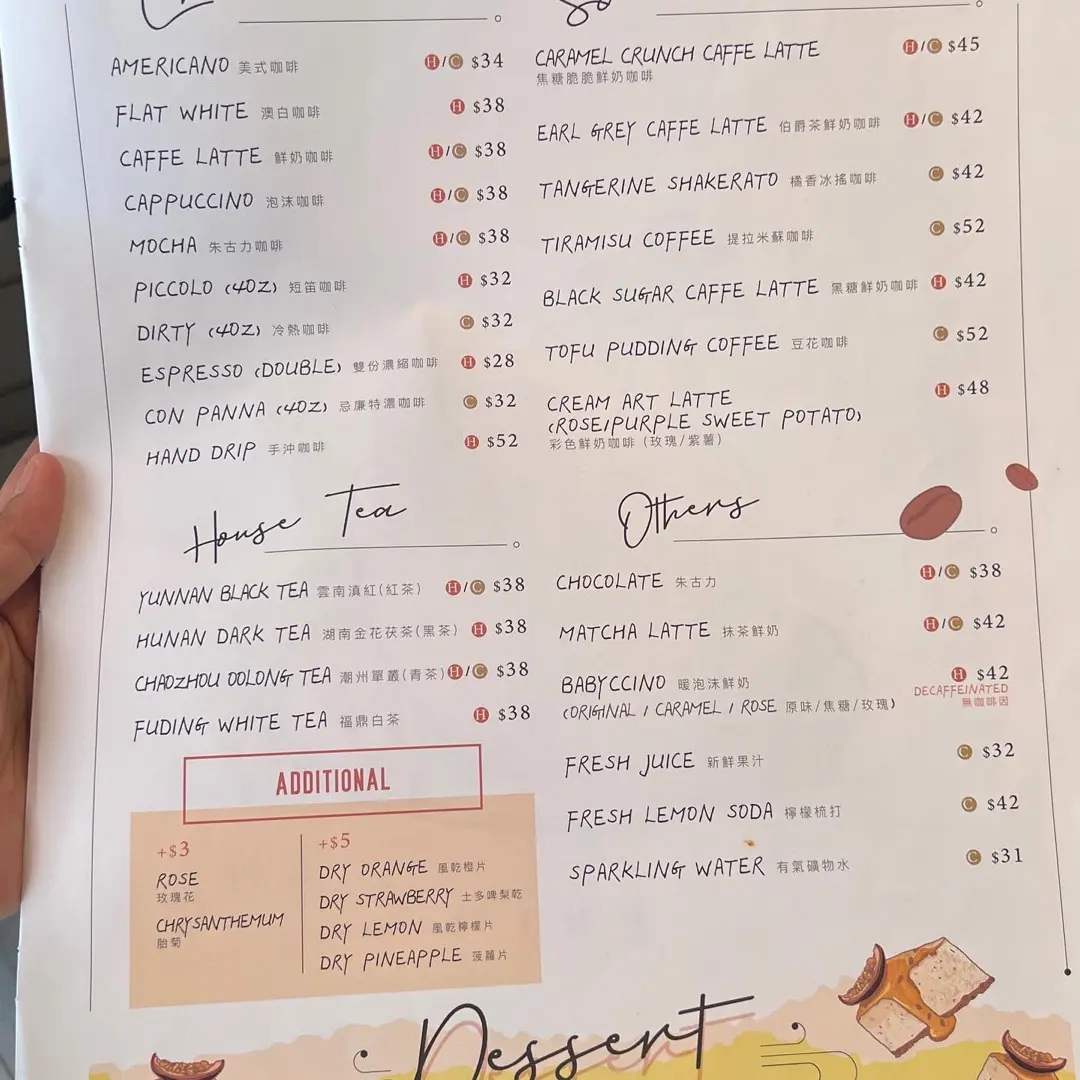 AMERICANO 美式咖啡 H/C $34
FLAT WHITE 澳白咖啡 H $38
CAFFE LATTE 鮮奶咖啡 H/C $38
CAPPUCCINO 泡沫咖啡 H/C $38
MOCHA 朱古力咖啡 H/C $38
PICCOLO (4OZ) 短笛咖啡 H $32
DIRTY (4OZ) 冷熱咖啡 C $32
ESPRESSO (DOUBLE) 雙份濃縮咖啡 H $28
CON PANNA (4OZ) 忌廉特濃咖啡 C $32
HAND DRIP 手沖咖啡 H $52
CARAMEL CRUNCH CAFFE LATTE H/C $45
焦糖脆脆鮮奶咖啡
EARL GREY CAFFE LATTE 伯爵茶鮮奶咖啡 H/C $42
TANGERINE SHAKERATO 橘香冰搖咖啡 C $42
TIRAMISU COFFEE 提拉米蘇咖啡 C $52
BLACK SUGAR CAFFE LATTE 黑糖鮮奶咖啡 H $42
TOFU PUDDING COFFEE 豆花咖啡 C $52
CREAM ART LATTE H $48
(ROSE/PURPLE SWEET POTATO)
彩色鮮奶咖啡 (玫瑰/紫薯)
House Tea
YUNNAN BLACK TEA 雲南滇紅(紅茶) H/C $38
HUNAN DARK TEA 湖南金花茯茶(黑茶) H $38
CHAOZHOU OOLONG TEA 潮州單叢(青茶) H/C $38
FUDING WHITE TEA 福鼎白茶 H $38
ADDITIONAL
+$3
ROSE
玫瑰花
CHRYSANTHEMUM
胎菊
+$5
DRY ORANGE 風乾橙片
DRY STRAWBERRY 士多啤梨乾
DRY LEMON 風乾檸檬片
DRY PINEAPPLE 菠蘿片
Others
CHOCOLATE 朱古力 H/C $38
MATCHA LATTE 抹茶鮮奶 H/C $42
BABYCCINO 暖泡沫鮮奶 H $42
DECAFFEINATED
無咖啡因
(ORIGINAL / CARAMEL / ROSE 原味/焦糖/玫瑰)
FRESH JUICE 新鮮果汁 C $32
FRESH LEMON SODA 檸檬梳打 C $42
SPARKLING WATER 有氣礦物水 C $31
Dessert